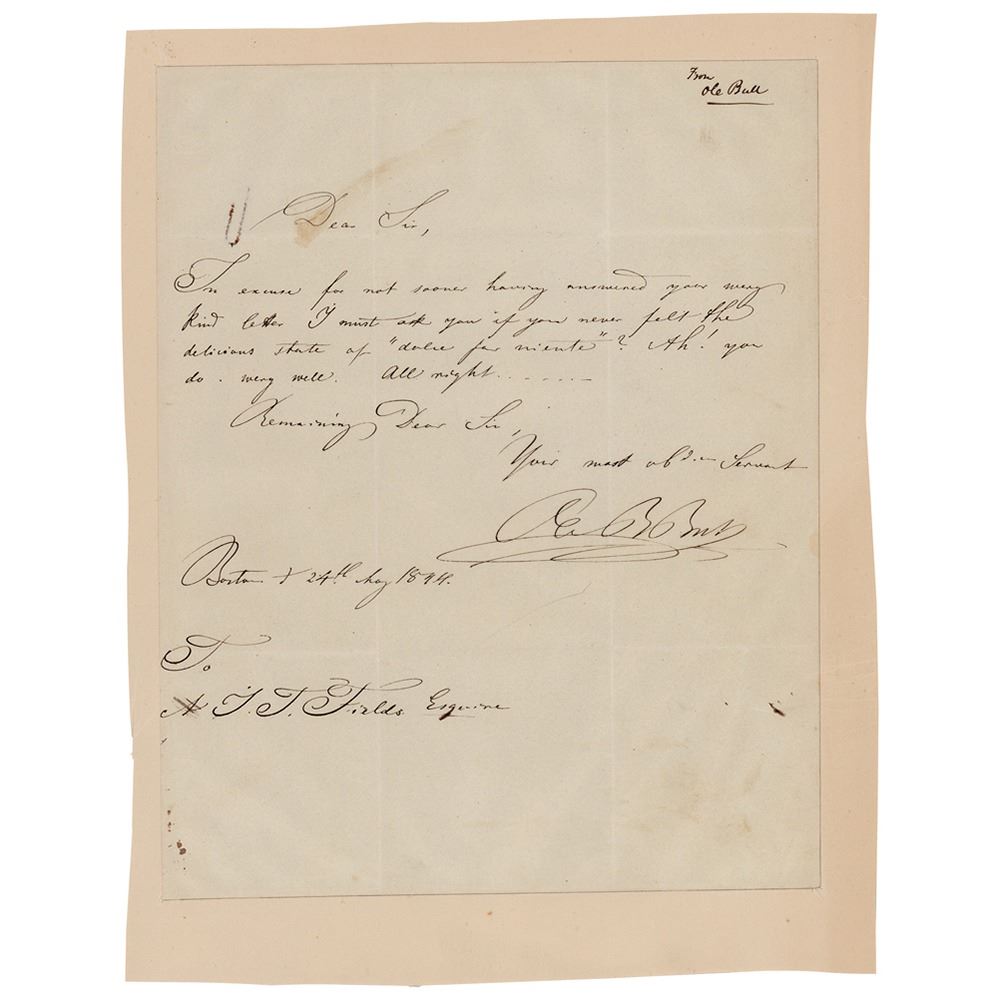 From
Ole Bull
Dear Sir,
In excuse for not sooner having answered your wery
kind letter I must ask you if you never felt the
delicious state of "dolce far niente"? Ah! you
do. wery well. All right.......
Remaining Dear Sir,
Your most obdien Servant
Ole B Bull
Boston 24th May 1844.
To
J. T. Fields Esquire